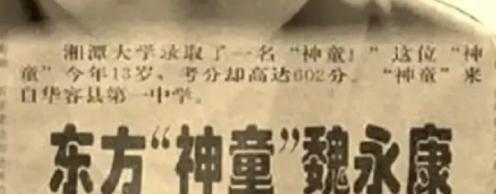 湘潭大学录取了一名“神童！”这位“神
童”今年13岁、考分却高达602分。“神童”来
自华容县第一中学。
东方“神童”魏永康